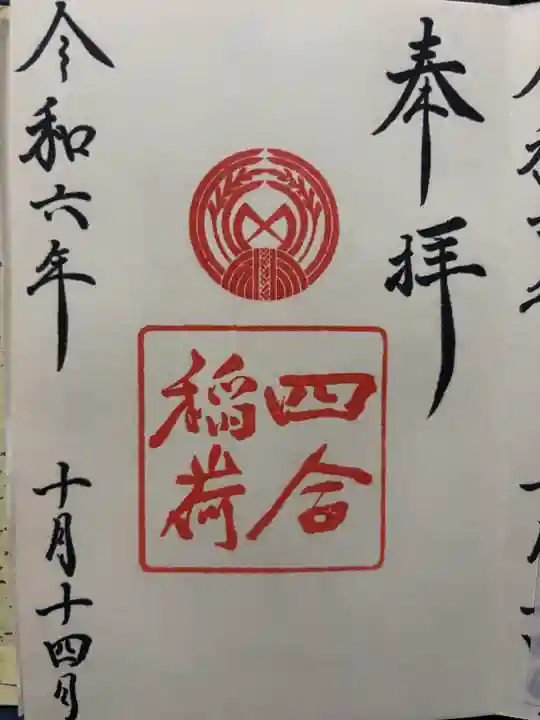 奉拝
四合
稲荷
令和六年
十月十四日